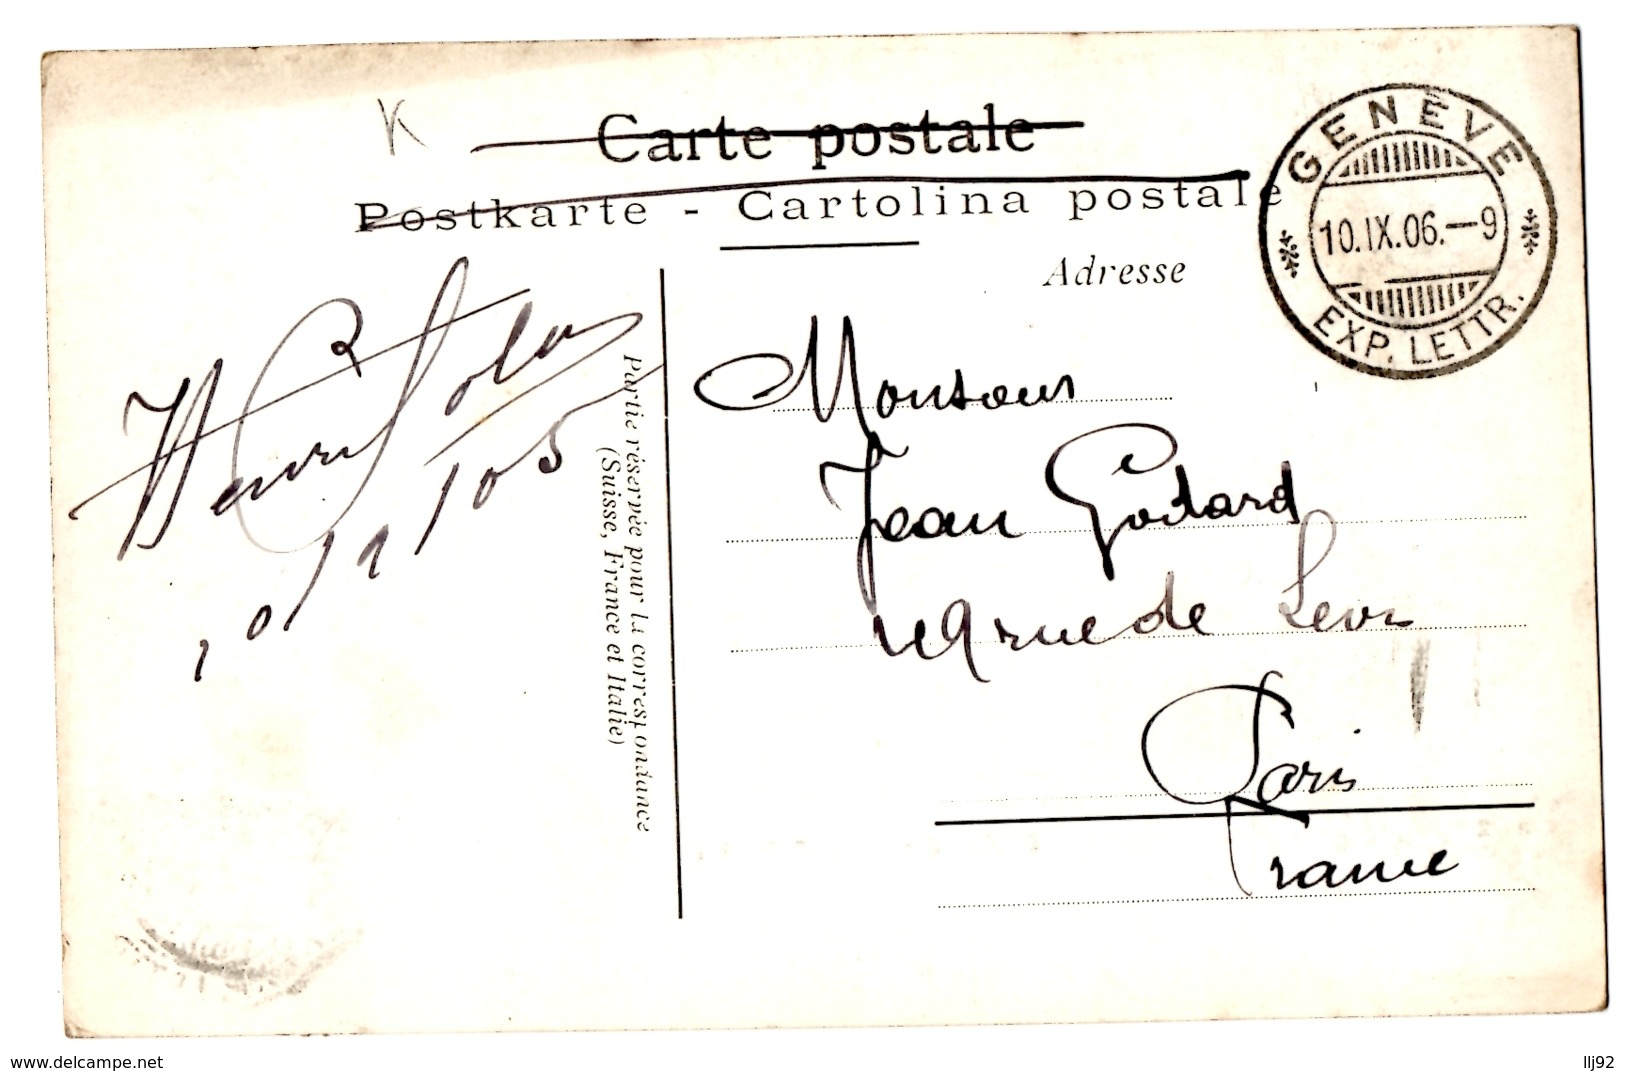 Carte postale
Postkarte - Cartolina postale
Adresse
GENÈVE
10.IX.06.—9
EXP. LETTR.
Partie réservée pour la correspondance
(Suisse, France et Italie)
Henri
10/9/05
Monsieur
Jean Godard
rue de
Paris
France
www.delcampe.net
llj92